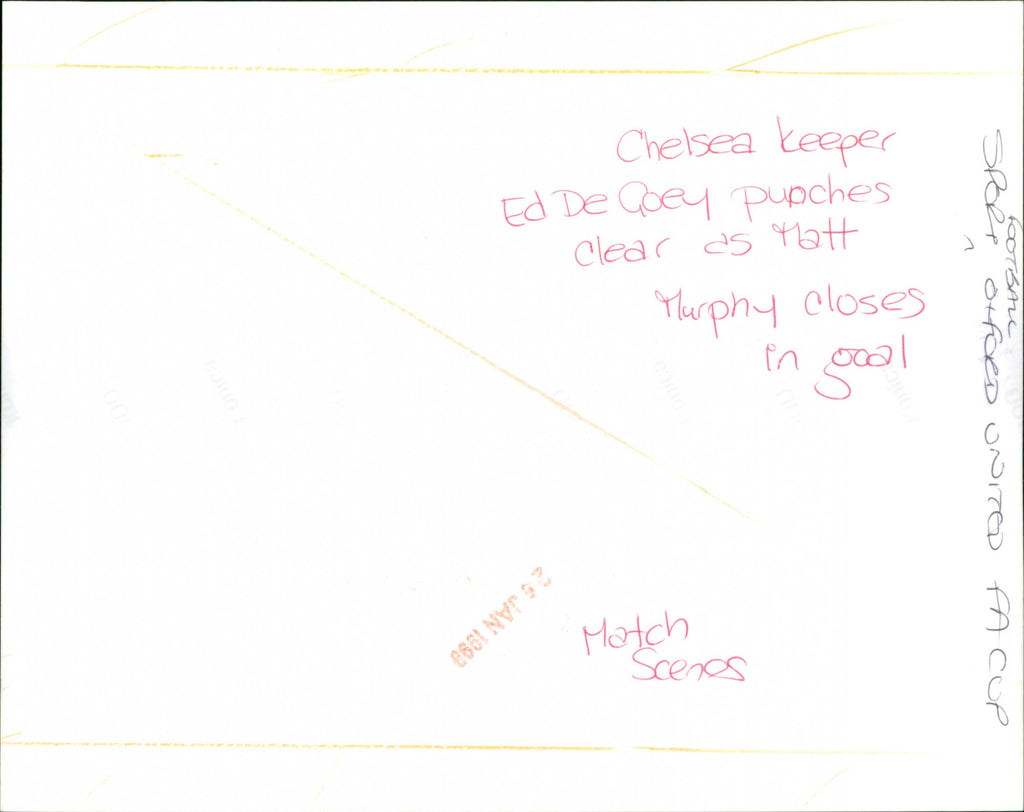 Chelsea keeper
Ed De Goey punches
clear as Matt
Murphy closes
in goal
Match
Scenes
26 JAN 1999
FOOTBALL
SPORT, OXFORD UNITED FA CUP